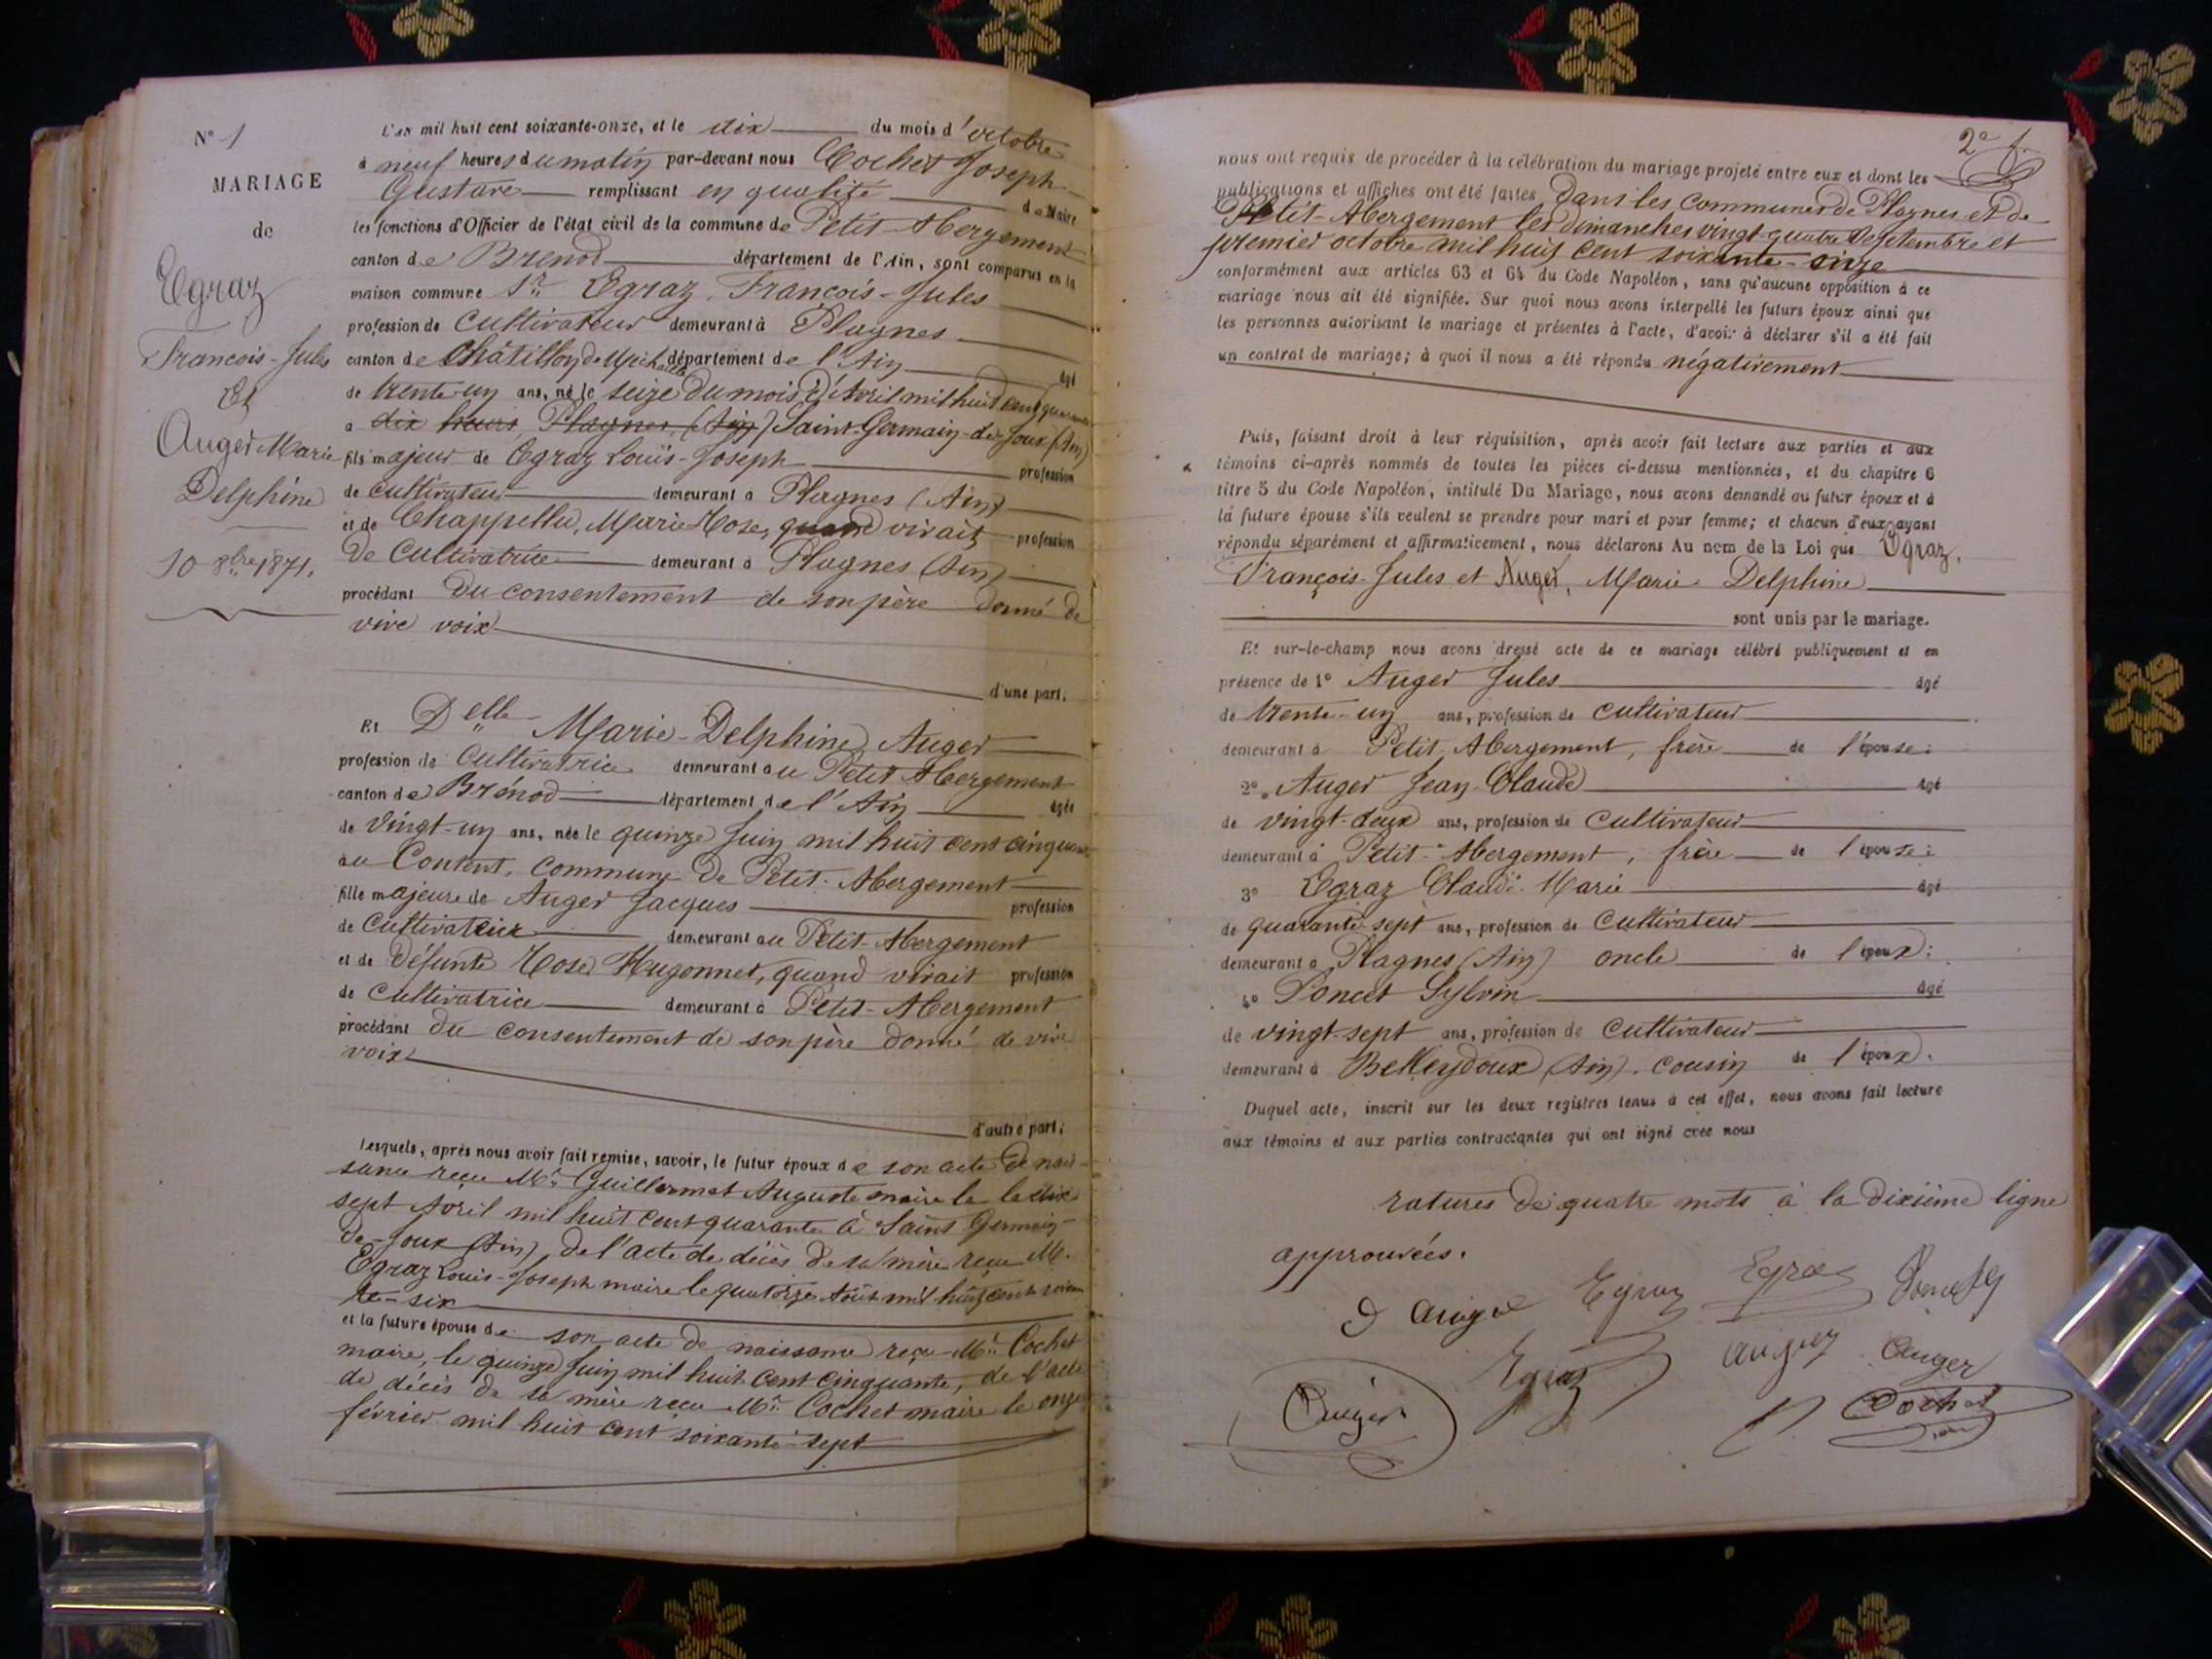 N° 1
MARIAGE
de
Egraz
François-Jules
Et
Auger Marie
Delphine
10 8bre 1871.
L'an mil huit cent soixante-onze, et le dix du mois d'octobre
à neuf heures du matin par-devant nous Cochet Joseph
Gustave remplissant en qualité de Maire
les fonctions d'Officier de l'état civil de la commune de Petit-Abergement
canton de Brenod département de l'Ain, sont comparus en la
maison commune Sr. Egraz, François-Jules
profession de Cultivateur demeurant à Plagnes
canton de Châtillon de Michaille département de l'Ain âgé
de trente-un ans, né le seize du mois d'Avril mil huit cent quarante
à dix heures Plagnes (Ain) Saint-Germain-de-Joux (Ain)
fils majeur de Egraz Louis-Joseph profession
de cultivateur demeurant à Plagnes (Ain)
et de Chappellu, Marie Rose, quand vivait profession
de Cultivatrice demeurant à Plagnes (Ain)
procédant du consentement de son père donné de
vive voix
d'une part;
Et Delle Marie-Delphine Auger
profession de Cultivatrice demeurant au Petit Abergement
canton de Brénod département de l'Ain âgée
de vingt-un ans, née le quinze Juin mil huit cent cinquante
au Content, commune de Petit-Abergement
fille majeure de Auger Jacques profession
de Cultivateur demeurant au Petit-Abergement
et de défunte Rose Hugonnet, quand vivait profession
de Cultivatrice demeurant à Petit-Abergement
procédant du consentement de son père donné de vive
voix
d'autre part;
Lesquels, après nous avoir fait remise, savoir, le futur époux de son acte de nais-
sance reçu Mr. Guillermet Auguste maire le le dix
sept Avril mil huit cent quarante à Saint Germain-
de-Joux (Ain), de l'acte de décès de sa mère reçu M.
Egraz Louis-Joseph maire le quatorze Août mil huit cent soixan
te-six
et la future épouse de son acte de naissance reçu Mr. Cochet
maire, le quinze Juin mil huit cent cinquante, de l'acte
de décès de sa mère reçu Mr. Cochet maire le onze
février mil huit cent soixante-sept
2e f.
nous ont requis de procéder à la célébration du mariage projeté entre eux et dont les
publications et affiches ont été faites dans les communes de Plagnes et de
Petit-Abergement les dimanches vingt-quatre septembre et
premier octobre mil huit cent soixante-onze
conformément aux articles 63 et 64 du Code Napoléon, sans qu'aucune opposition à ce
mariage nous ait été signifiée. Sur quoi nous avons interpellé les futurs époux ainsi que
les personnes autorisant le mariage et présentes à l'acte, d'avoir à déclarer s'il a été fait
un contrat de mariage; à quoi il nous a été répondu négativement
Puis, faisant droit à leur réquisition, après avoir fait lecture aux parties et aux
témoins ci-après nommés de toutes les pièces ci-dessus mentionnées, et du chapitre 6
titre 5 du Code Napoléon, intitulé Du Mariage, nous avons demandé au futur époux et à
la future épouse s'ils veulent se prendre pour mari et pour femme; et chacun d'eux ayant
répondu séparément et affirmativement, nous déclarons Au nom de la Loi que Egraz,
François-Jules et Auger, Marie Delphine
sont unis par le mariage.
Et sur-le-champ nous avons dressé acte de ce mariage célébré publiquement et en
présence de 1° Auger Jules âgé
de trente-un ans, profession de cultivateur
demeurant à Petit Abergement, frère de l'épouse;
2° Auger Jean-Claude âgé
de vingt-deux ans, profession de Cultivateur
demeurant à Petit-Abergement, frère de l'épouse;
3° Egraz Claude-Marie âgé
de quarante sept ans, profession de Cultivateur
demeurant à Plagnes (Ain) oncle de l'époux;
4° Poncet Sylvin âgé
de vingt-sept ans, profession de Cultivateur
demeurant à Belleydoux (Ain). cousin de l'époux.
Duquel acte, inscrit sur les deux registres tenus à cet effet, nous avons fait lecture
aux témoins et aux parties contractantes qui ont signé avec nous
ratures de quatre mots à la dixième ligne
approuvées.
Egraz Egraz
Egraz Auger
Auger Cochet